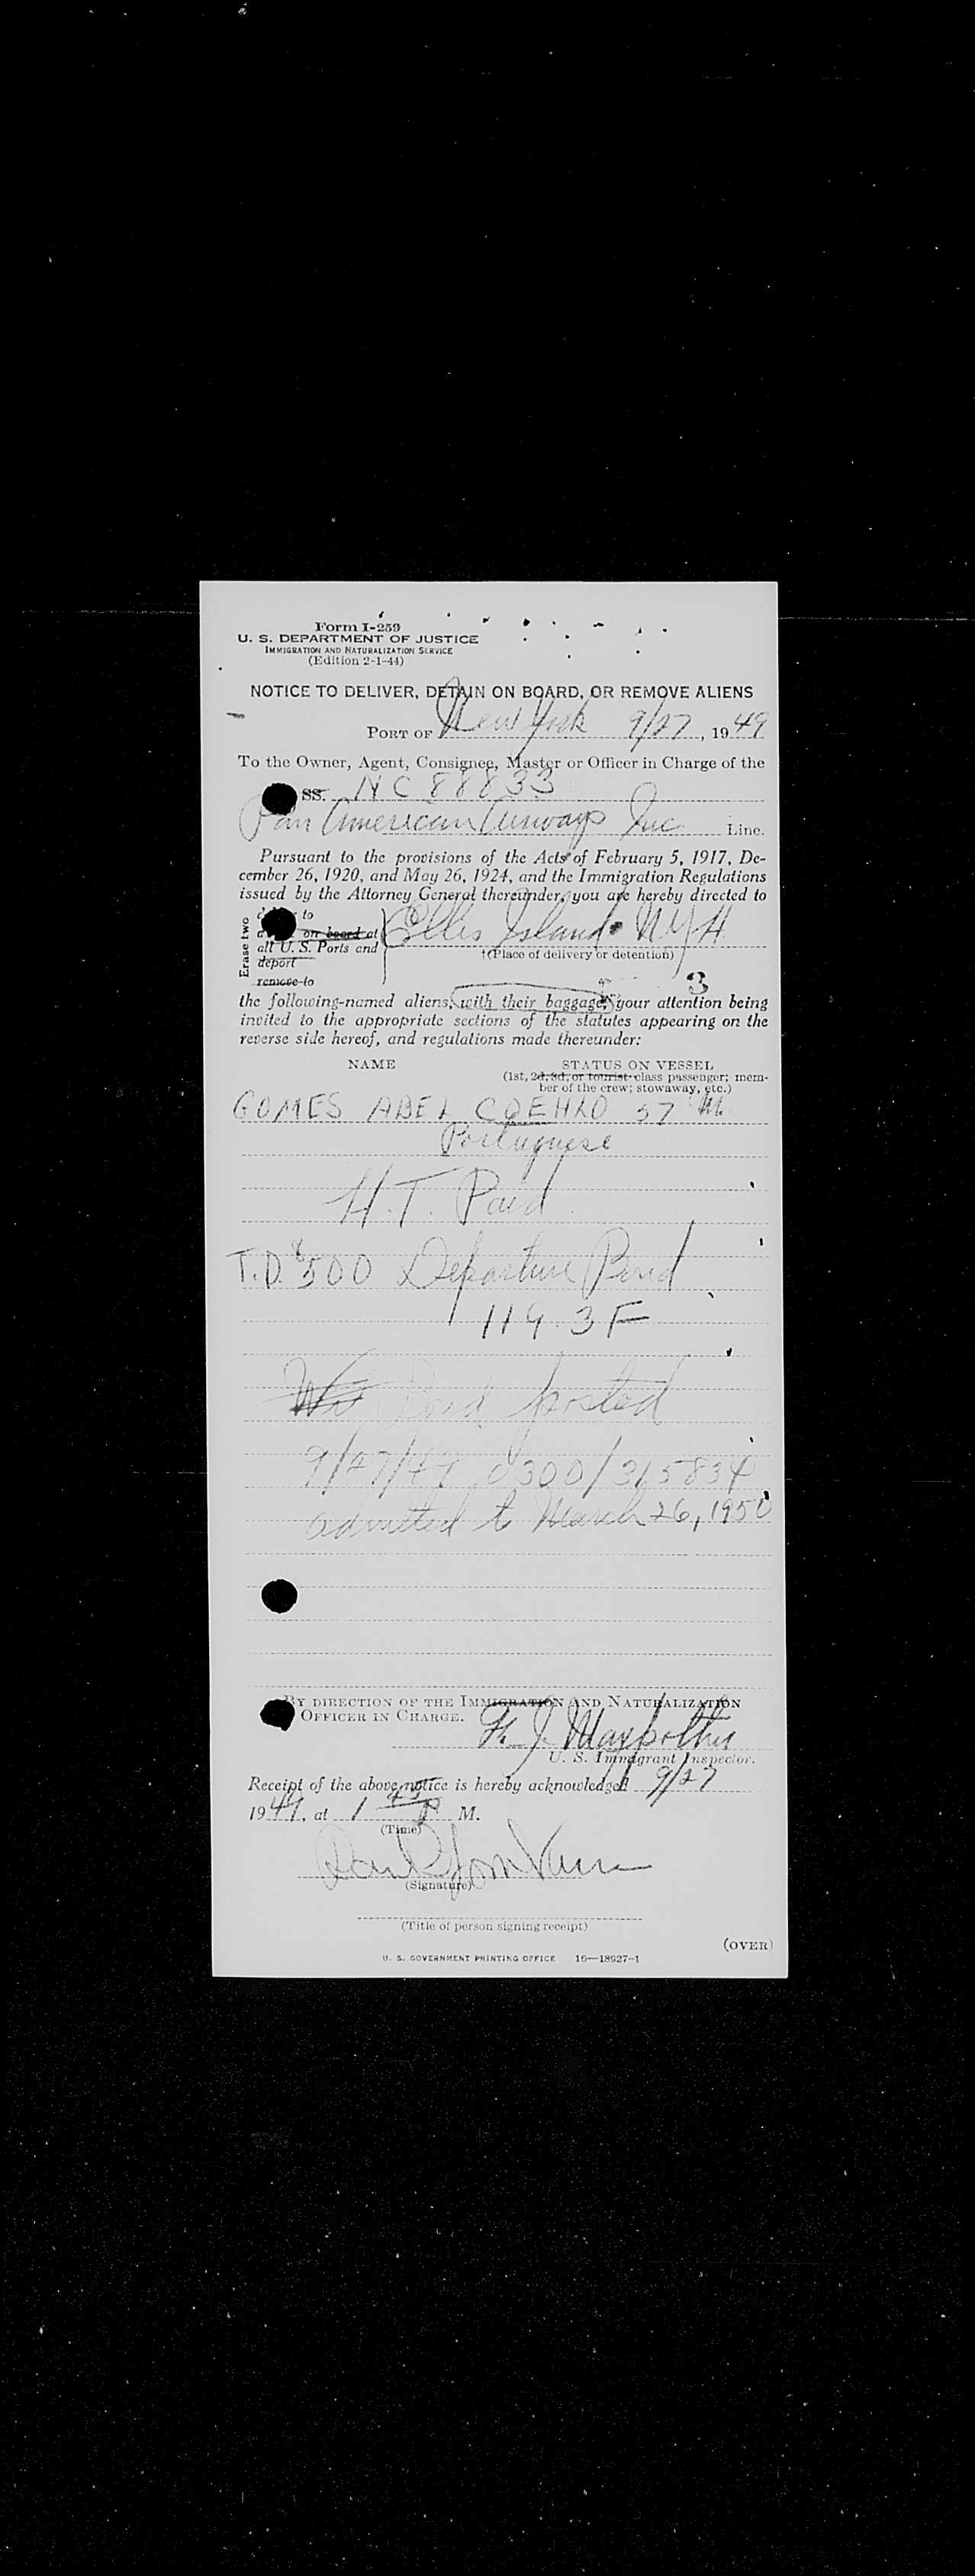 Form I-259
U. S. DEPARTMENT OF JUSTICE
IMMIGRATION AND NATURALIZATION SERVICE
(Edition 2-1-44)
NOTICE TO DELIVER, DETAIN ON BOARD, OR REMOVE ALIENS
PORT OF New York 9/27, 1949
To the Owner, Agent, Consignee, Master or Officer in Charge of the
SS. NC 88833
Pan American Airways Inc Line.
Pursuant to the provisions of the Acts of February 5, 1917, De-
cember 26, 1920, and May 26, 1924, and the Immigration Regulations
issued by the Attorney General thereunder, you are hereby directed to
Erase two
to
on board at
all U. S. Ports and
deport
remove to
Ellis Island NYH
†(Place of delivery or detention)
3
the following-named aliens, with their baggage, your attention being
invited to the appropriate sections of the statutes appearing on the
reverse side hereof, and regulations made thereunder:
NAME STATUS ON VESSEL
(1st, 2d, 3d, or tourist-class passenger; mem-
ber of the crew; stowaway, etc.)
GOMES ABEL COEHLO 37 M.
Portuguese
H.T. Paid
T.D. $500 Departure Bond
119.3F
Bond posted
9/27/49 0300/315834
admitted to March 26, 1950
BY DIRECTION OF THE IMMIGRATION AND NATURALIZATION
OFFICER IN CHARGE.
U. S. Immigrant Inspector.
Receipt of the above notice is hereby acknowledged 9/27
1949, at 1 P M.
(Time)
(Signature)
(Title of person signing receipt)
(OVER)
U. S. GOVERNMENT PRINTING OFFICE 16—18927-1